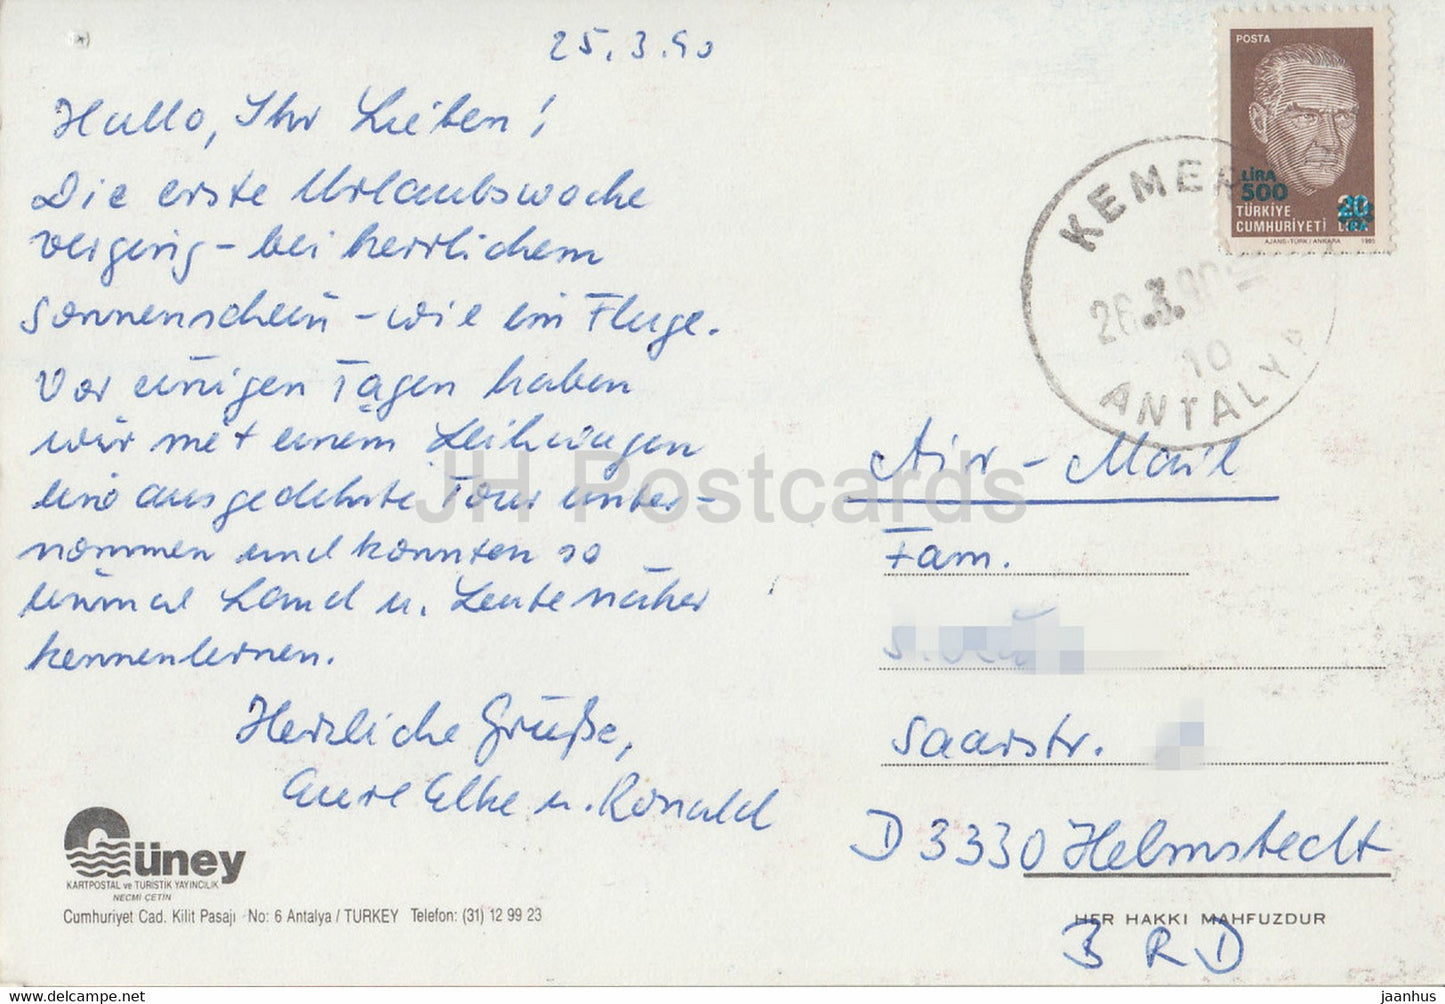 25.3.90
Hallo, Ihr Lieben!
Die erste Urlaubswoche
verging – bei herrlichem
Sonnenschein – wie im Fluge.
Vor einigen Tagen haben
wir mit einem Leihwagen
eine ausgedehnte Tour unter-
nommen und konnten so
einmal Land u. Leute näher
kennenlernen.
Herzliche Grüße,
Eure Elke u. Ronald
Güney
KARTPOSTAL ve TURİSTİK YAYINCILIK
NECMİ ÇETİN
Cumhuriyet Cad. Kilit Pasajı No: 6 Antalya / TURKEY Telefon: (31) 12 99 23
POSTA
LİRA
500
20
LİRA
TÜRKİYE
CUMHURİYETİ
AJANS-TÜRK / ANKARA 1985
KEMER
26.3.90
10
ANTALYA
Air-Mail
Fam.
Saarstr.
D 3330 Helmstedt
HER HAKKI MAHFUZDUR
BRD
JH Postcards
www.delcampe.net
jaanhus